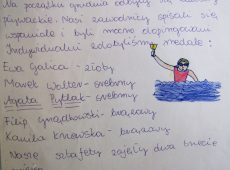 Na początku grudnia odbyły się zawody
pływackie. Nasi zawodnicy spisali się
wspaniale i byli mocno dopingowani
Indywidualnie zdobyliśmy medale:
Ewa Galica - złoty
Marek Walter - srebrny
Agata Pytlak - srebrny
Filip - brązowy
Kamila - brązowy
Nasze sztafety zajęły dwa trzecie